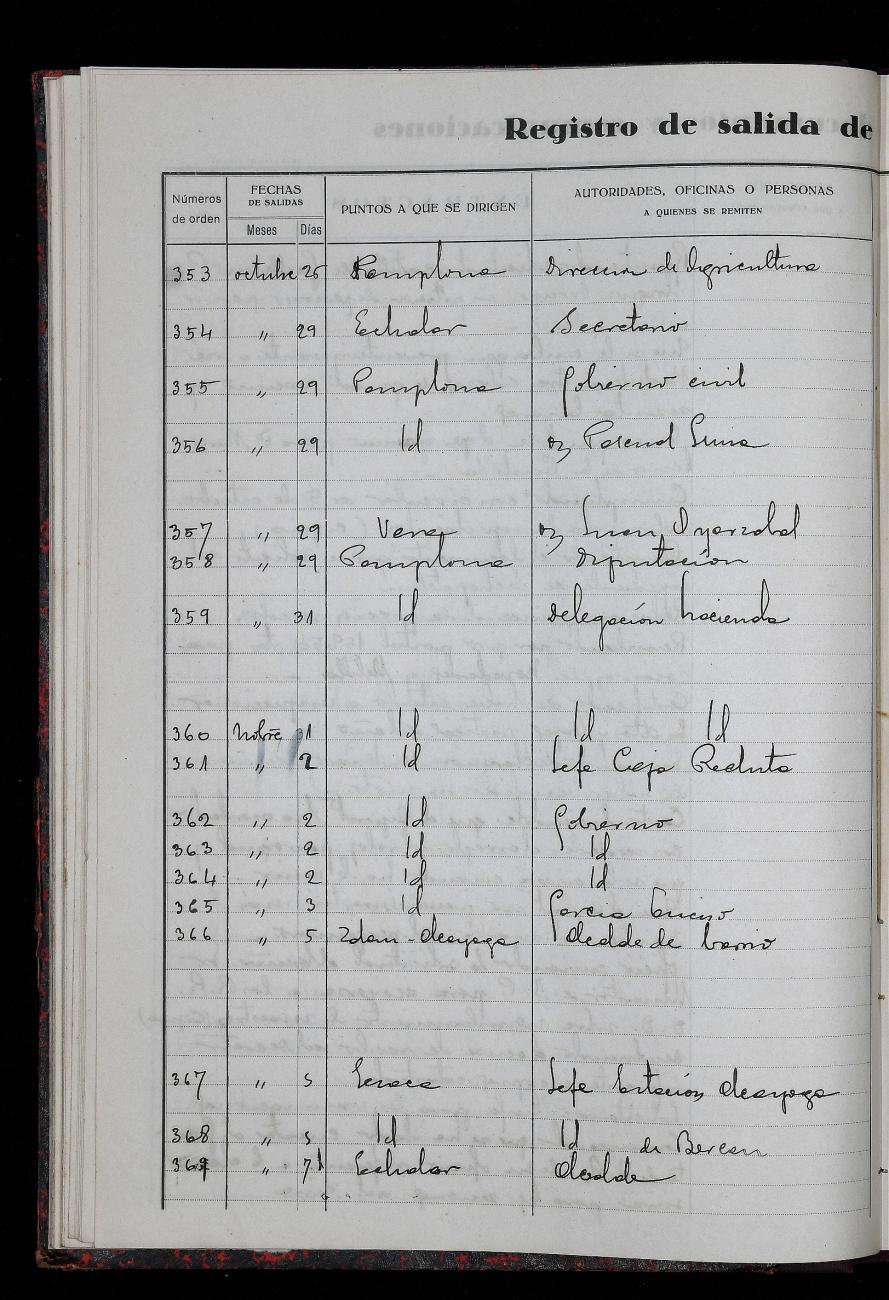 Registro de salida de
Números de orden
FECHAS DE SALIDAS
Meses Días
PUNTOS A QUE SE DIRIGEN
AUTORIDADES, OFICINAS O PERSONAS A QUIENES SE REMITEN
353 octubre 26 Pamplona Dirección de Agricultura
354 " 29 Echalar Secretario
355 " 29 Pamplona Gobierno civil
356 " 29 Id
357 " 29 Vera Juan Oyarzabal
358 " 29 Pamplona Diputación
359 " 31 Id Delegación hacienda
360 Nobre 31 Id Id Id
361 " 2 Id Jefe Caja Recluta
362 " 2 Id Gobierno
363 " 2 Id Id
364 " 2 Id Id
365 " 3 Id Garcia
366 " 5 Alcalde de barrio
367 " 5 Lesaca Jefe Estación Alcayaga
368 " 5 Id Id de
369 " 7 Echalar Alcalde